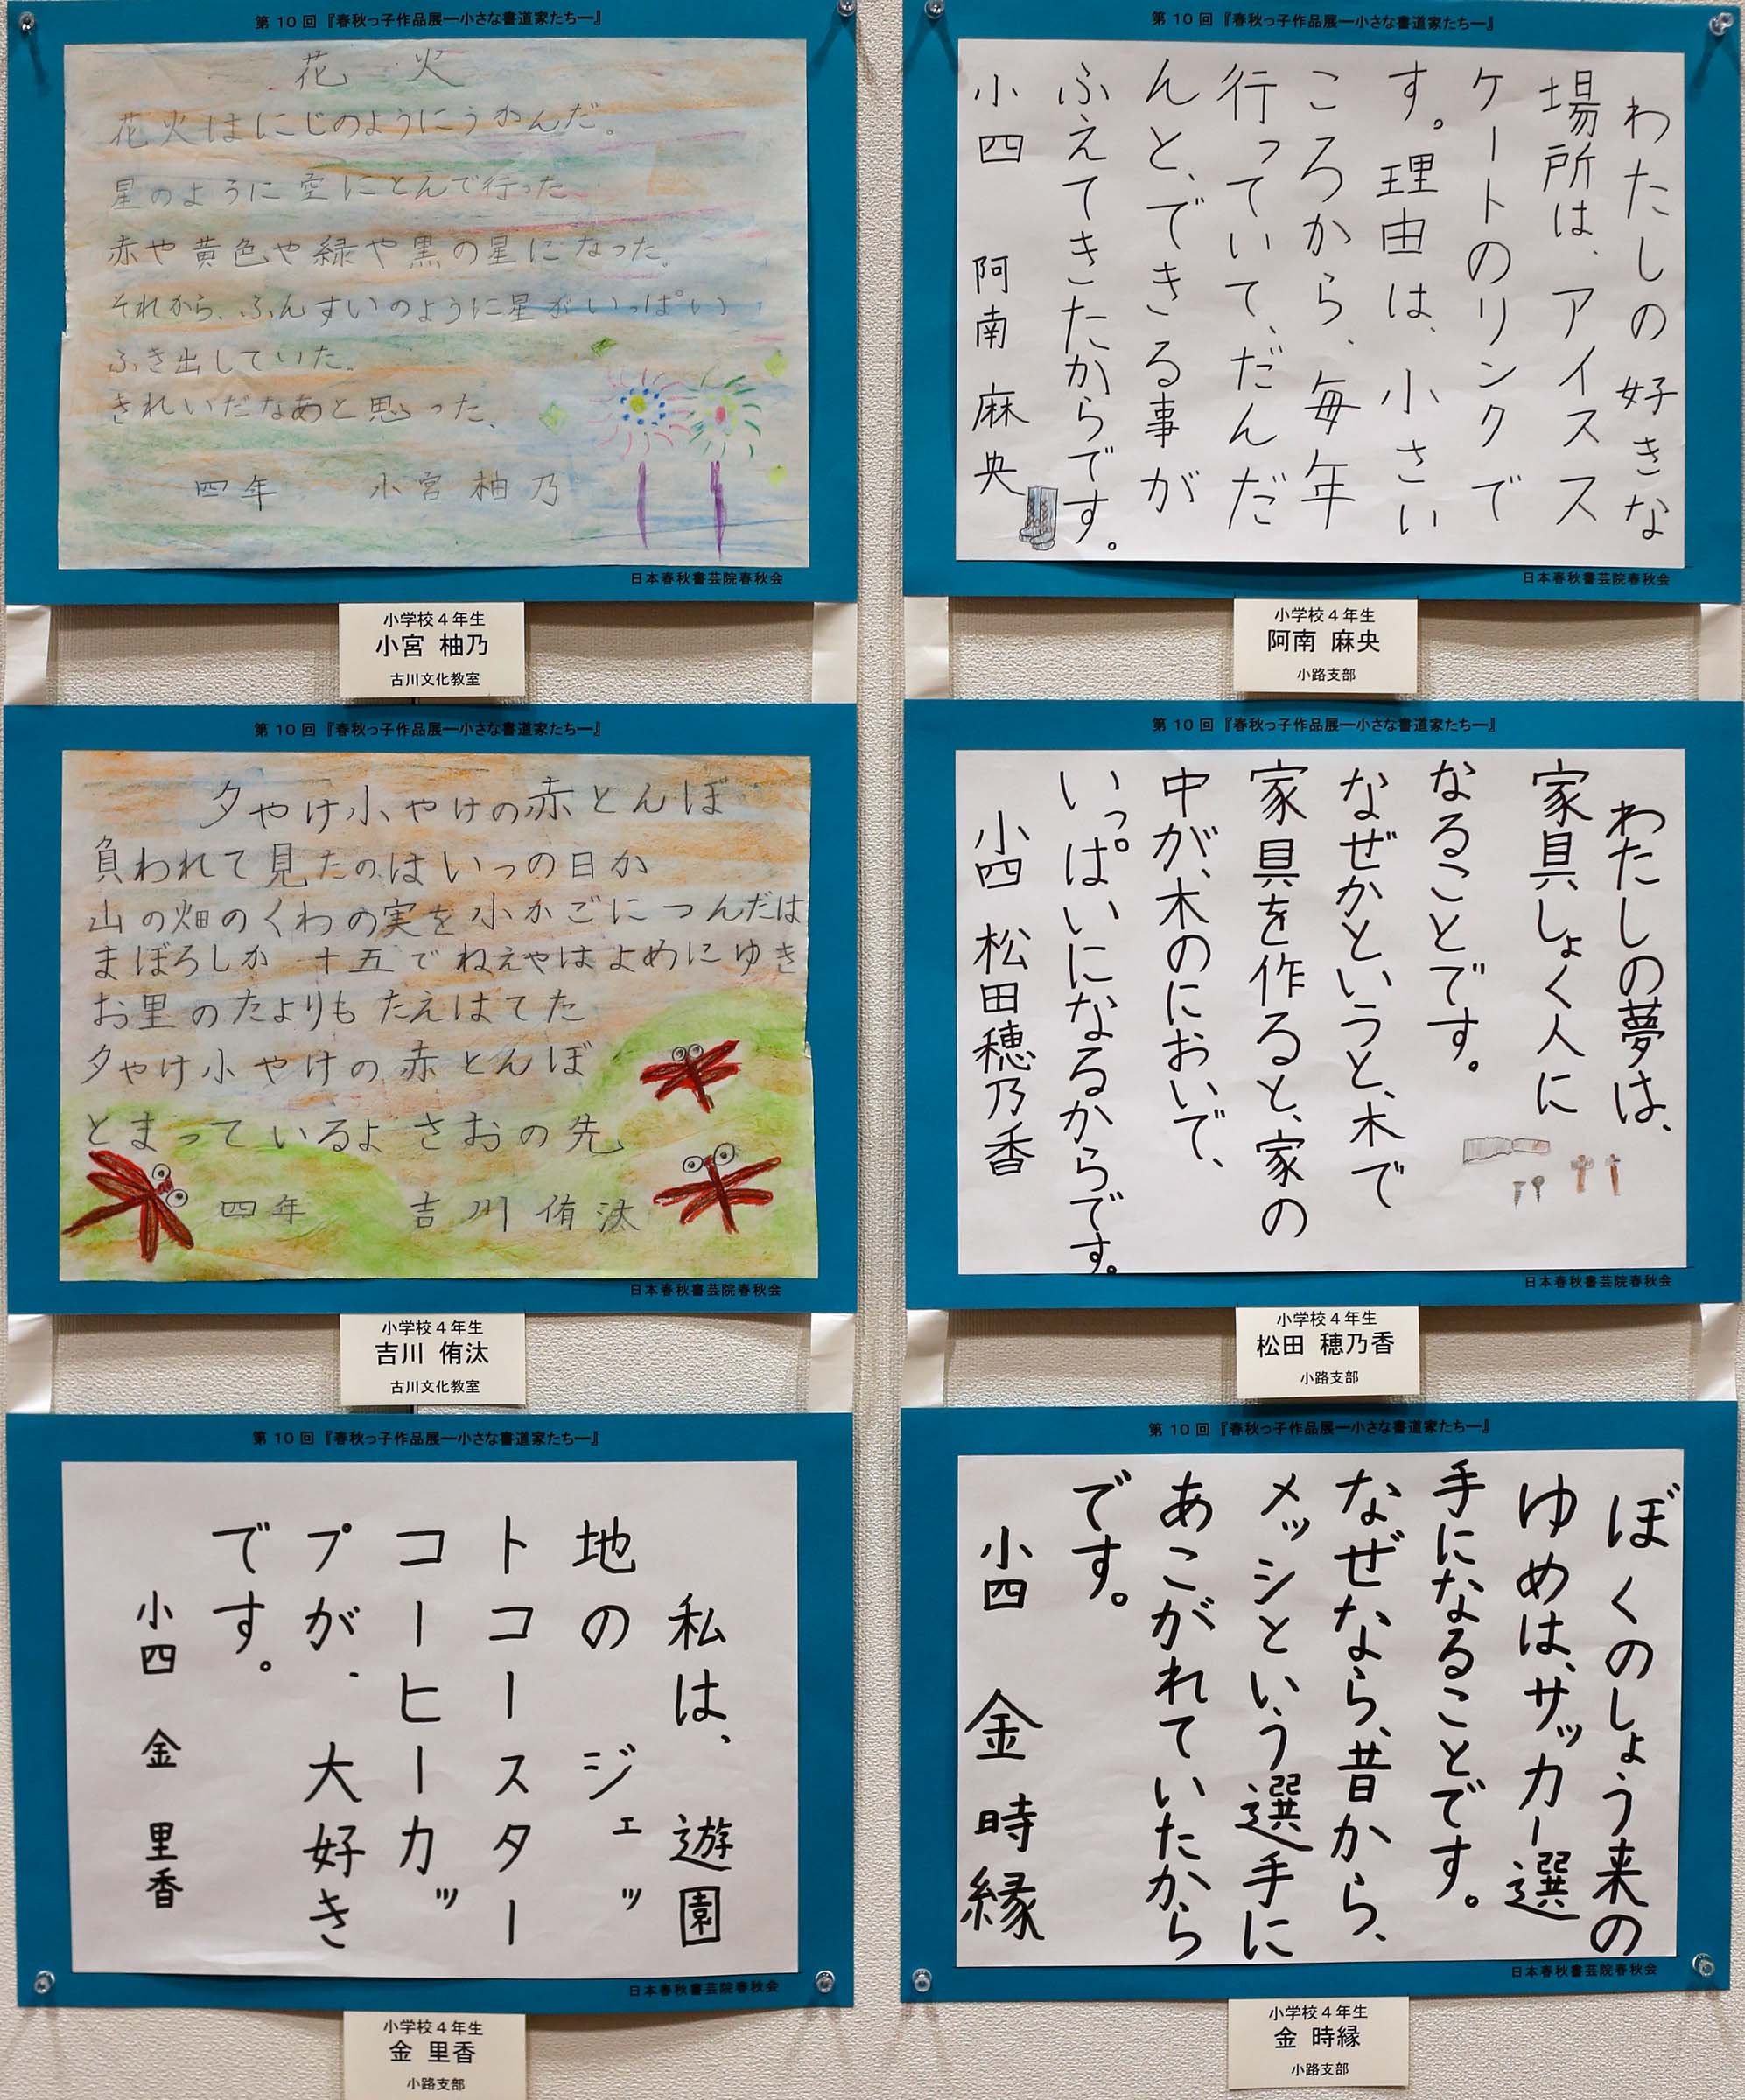 第10回『春秋っ子作品展―小さな書道家たち―』
花火
花火はにじのようにうかんだ。
星のように空にとんで行った
赤や黄色や緑や黒の星になった。
それから、ふんすいのように星がいっぱい
ふき出していた。
きれいだなあと思った、
四年 小宮柚乃
日本春秋書芸院春秋会
小学校4年生
小宮 柚乃
古川文化教室
第10回『春秋っ子作品展―小さな書道家たち―』
わたしの好きな
場所は、アイスス
ケートのリンクで
す。理由は、小さい
ころから、毎年
行っていて、だんだ
んと、できる事が
ふえてきたからです。
小四 阿南麻央
日本春秋書芸院春秋会
小学校4年生
阿南 麻央
小路支部
第10回『春秋っ子作品展―小さな書道家たち―』
夕やけ小やけの赤とんぼ
負われて見たのはいっの日か
山の畑のくわの実を小かごにつんだは
まぼろしか 十五でねえやはよめにゆき
お里のたよりもたえはてた
夕やけ小やけの赤とんぼ
とまっているよさおの先
四年 吉川侑汰
日本春秋書芸院春秋会
小学校4年生
吉川 侑汰
古川文化教室
第10回『春秋っ子作品展―小さな書道家たち―』
わたしの夢は、
家具しょく人に
なることです。
なぜかというと、木で
家具を作ると、家の
中が、木のにおいで、
いっぱいになるからです。
小四 松田穂乃香
日本春秋書芸院春秋会
小学校4年生
松田 穂乃香
小路支部
第10回『春秋っ子作品展―小さな書道家たち―』
私は、遊園
地のジェッ
トコースター
コーヒーカッ
プが、大好き
です。
小四 金里香
日本春秋書芸院春秋会
小学校4年生
金 里香
小路支部
第10回『春秋っ子作品展―小さな書道家たち―』
ぼくのしょう来の
ゆめは、サッカー選
手になることです。
なぜなら、昔から、
メッシという選手に
あこがれていたから
です。
小四 金時縁
日本春秋書芸院春秋会
小学校4年生
金 時縁
小路支部